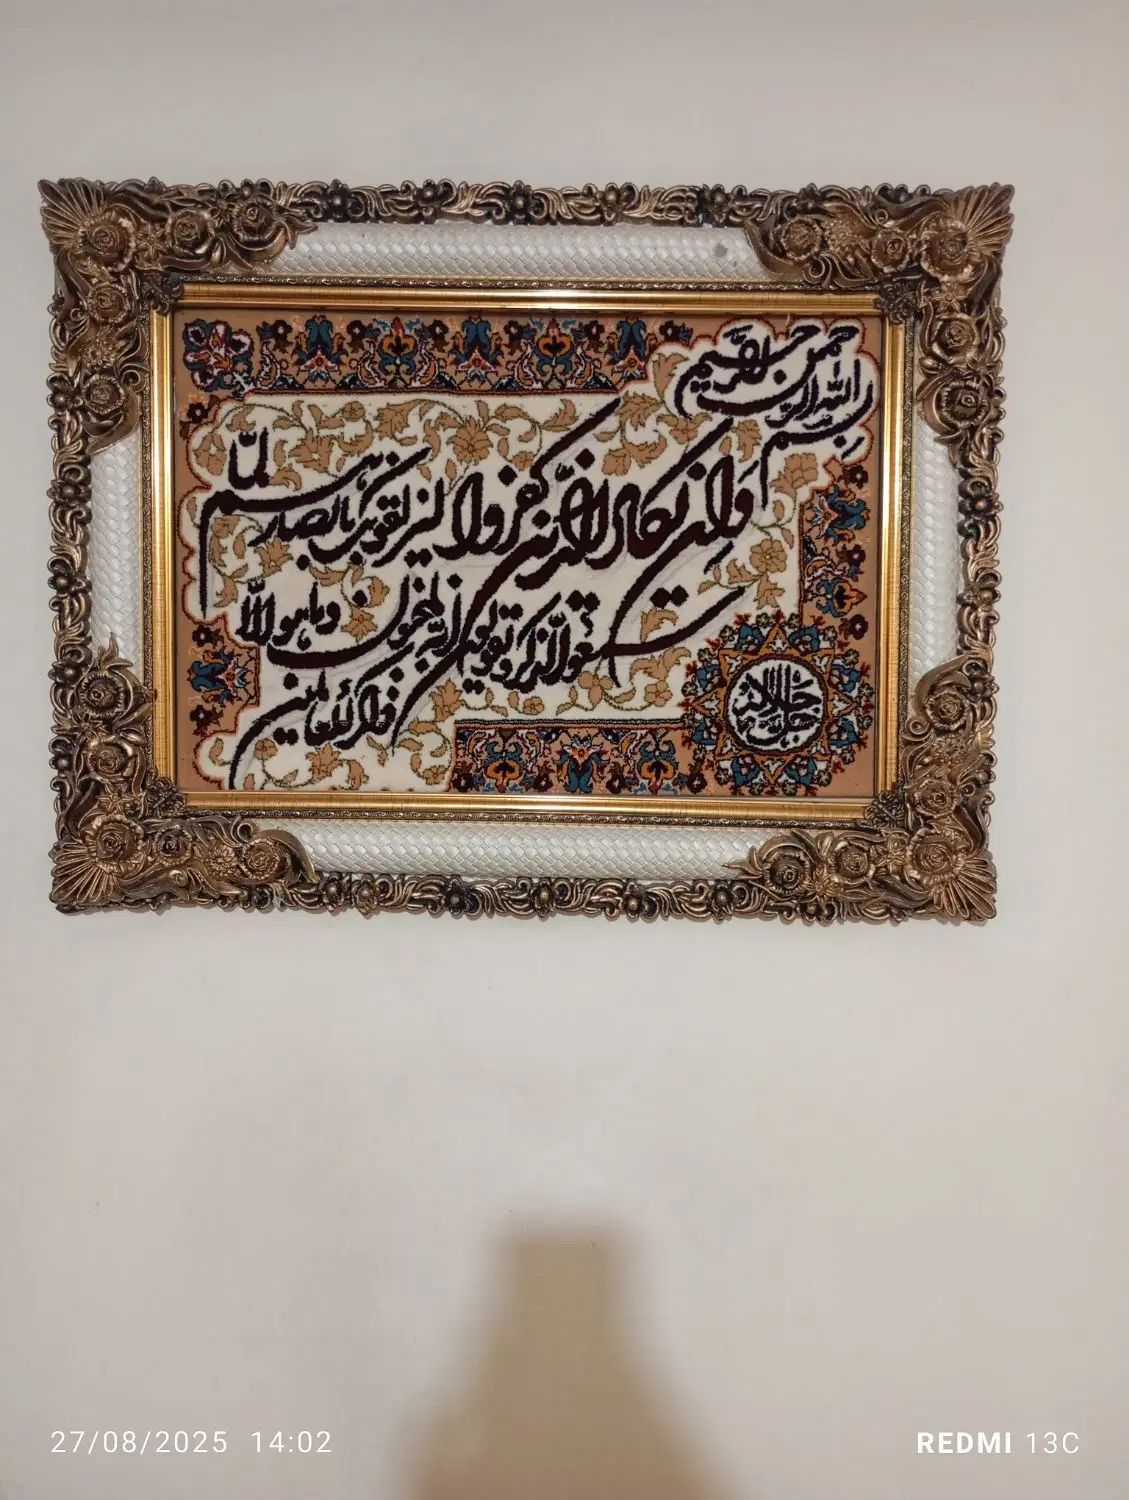 بسم الله الرحمن الرحیم
وان یکاد الذین کفروا لیزلقونک بابصارهم لما
سمعوا الذکر و یقولون انه لمجنون وما هو الا
ذکر للعالمین
27/08/2025 14:02
REDMI 13C